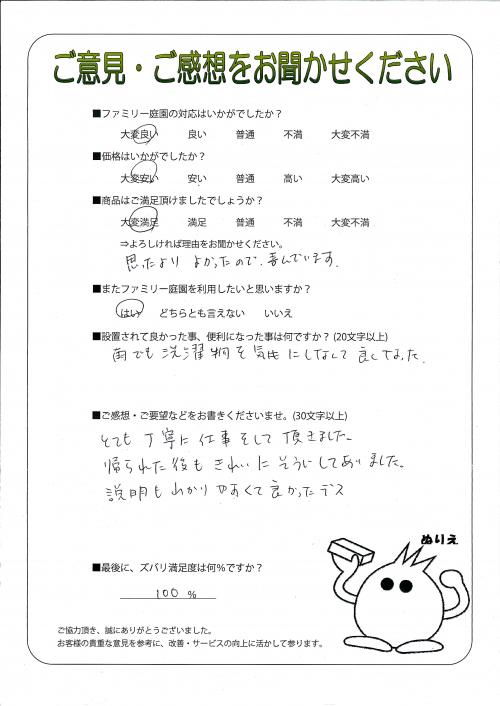 ご意見・ご感想をお聞かせください
■ファミリー庭園の対応はいかがでしたか？
大変良い 良い 普通 不満 大変不満
■価格はいかがでしたか？
大変安い 安い 普通 高い 大変高い
■商品はご満足頂けましたでしょうか？
大変満足 満足 普通 不満 大変不満
⇒よろしければ理由をお聞かせください。
思ったより よかったので、喜んでいます。
■またファミリー庭園を利用したいと思いますか？
はい どちらとも言えない いいえ
■設置されて良かった事、便利になった事は何ですか？ (20文字以上)
雨でも 洗濯物を 気にしなくて 良くなった。
■ご感想・ご要望などをお書きくださいませ。(30文字以上)
とても 丁寧に 仕事をして 頂きました。
帰られた後も きれいに そうじしてありました。
説明も わかりやすくて 良かったデス
ぬりえ
■最後に、ズバリ満足度は何%ですか？
100 %
ご協力頂き、誠にありがとうございました。
お客様の貴重な意見を参考に、改善・サービスの向上に活かして参ります。